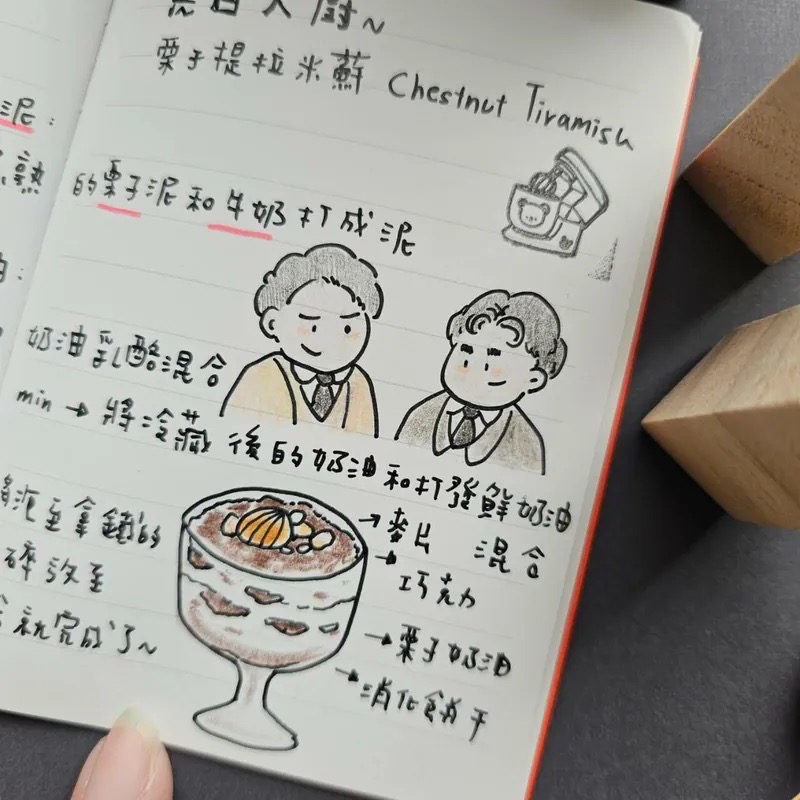 黑白大廚~
栗子提拉米蘇 Chestnut Tiramisu
泥:
熟
的栗子泥和牛奶打成泥
奶油乳酪混合
min → 將冷藏後的奶油和打發鮮奶油
混合
→ 麥片
→ 巧克力
→ 栗子奶油
→ 消化餅干
泥至拿鐵的
碎放至
就完成了~